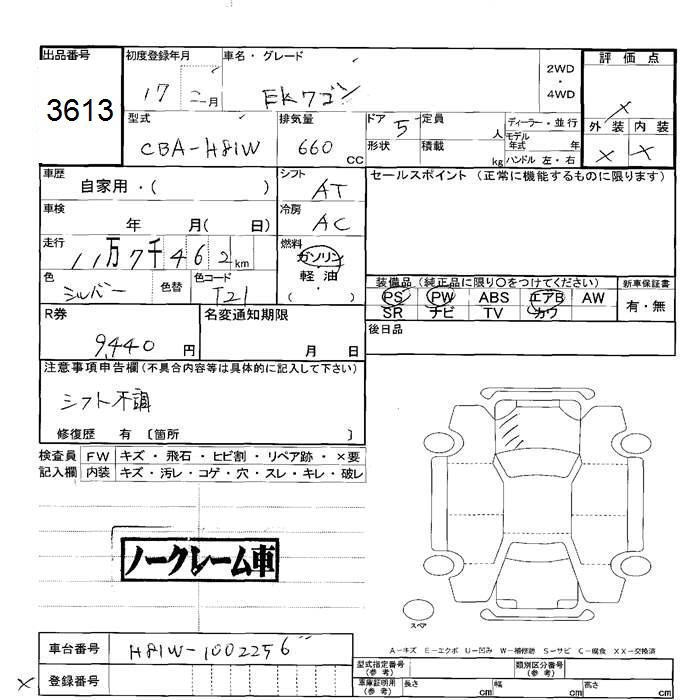 出品番号
3613
初度登録年月
17 二月
車名・グレード
EKワゴン
2WD
・
4WD
評価点
×
外装 内装
× ×
型式
CBA-H81W
排気量
660 CC
ドア 5
形状
定員 人
積載 kg
ディーラー・並行
モデル年式 年
ハンドル 左・右
車歴
自家用・( )
シフト AT
セールスポイント(正常に機能するものに限ります)
車検
年 月( 日)
冷房 AC
走行
11万7千462km
燃料
ガソリン
軽油
( )
色 シルバー
色替
色コード T21
装備品(純正品に限り〇をつけてください)
PS PW ABS エアB AW
SR ナビ TV カワ
新車保証書
有・無
R券
9,440 円
名変通知期限
月 日
後日品
注意事項申告欄(不具合内容等は具体的に記入して下さい)
シフト不調
修復歴 有〔箇所 〕
検査員 FW キズ・飛石・ヒビ割・リペア跡・×要
記入欄 内装 キズ・汚レ・コゲ・穴・スレ・キレ・破レ
ノークレーム車
スペア
A-キズ E-エクボ U-凹み W-補修跡 S-サビ C-腐食 XX-交換済
車台番号 H81W-1002256
× 登録番号
型式指定番号(参考)
類別区分番号(参考)
車庫証明用(参考) 長さ cm 幅 cm 高さ cm